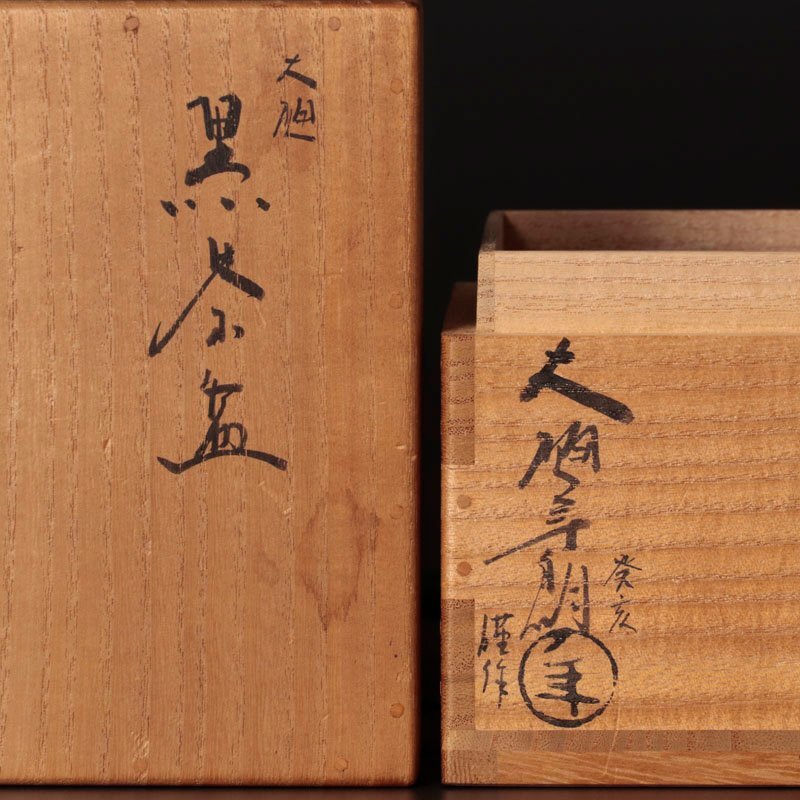 大樋
黒茶盌
癸亥
大樋年朗
謹作